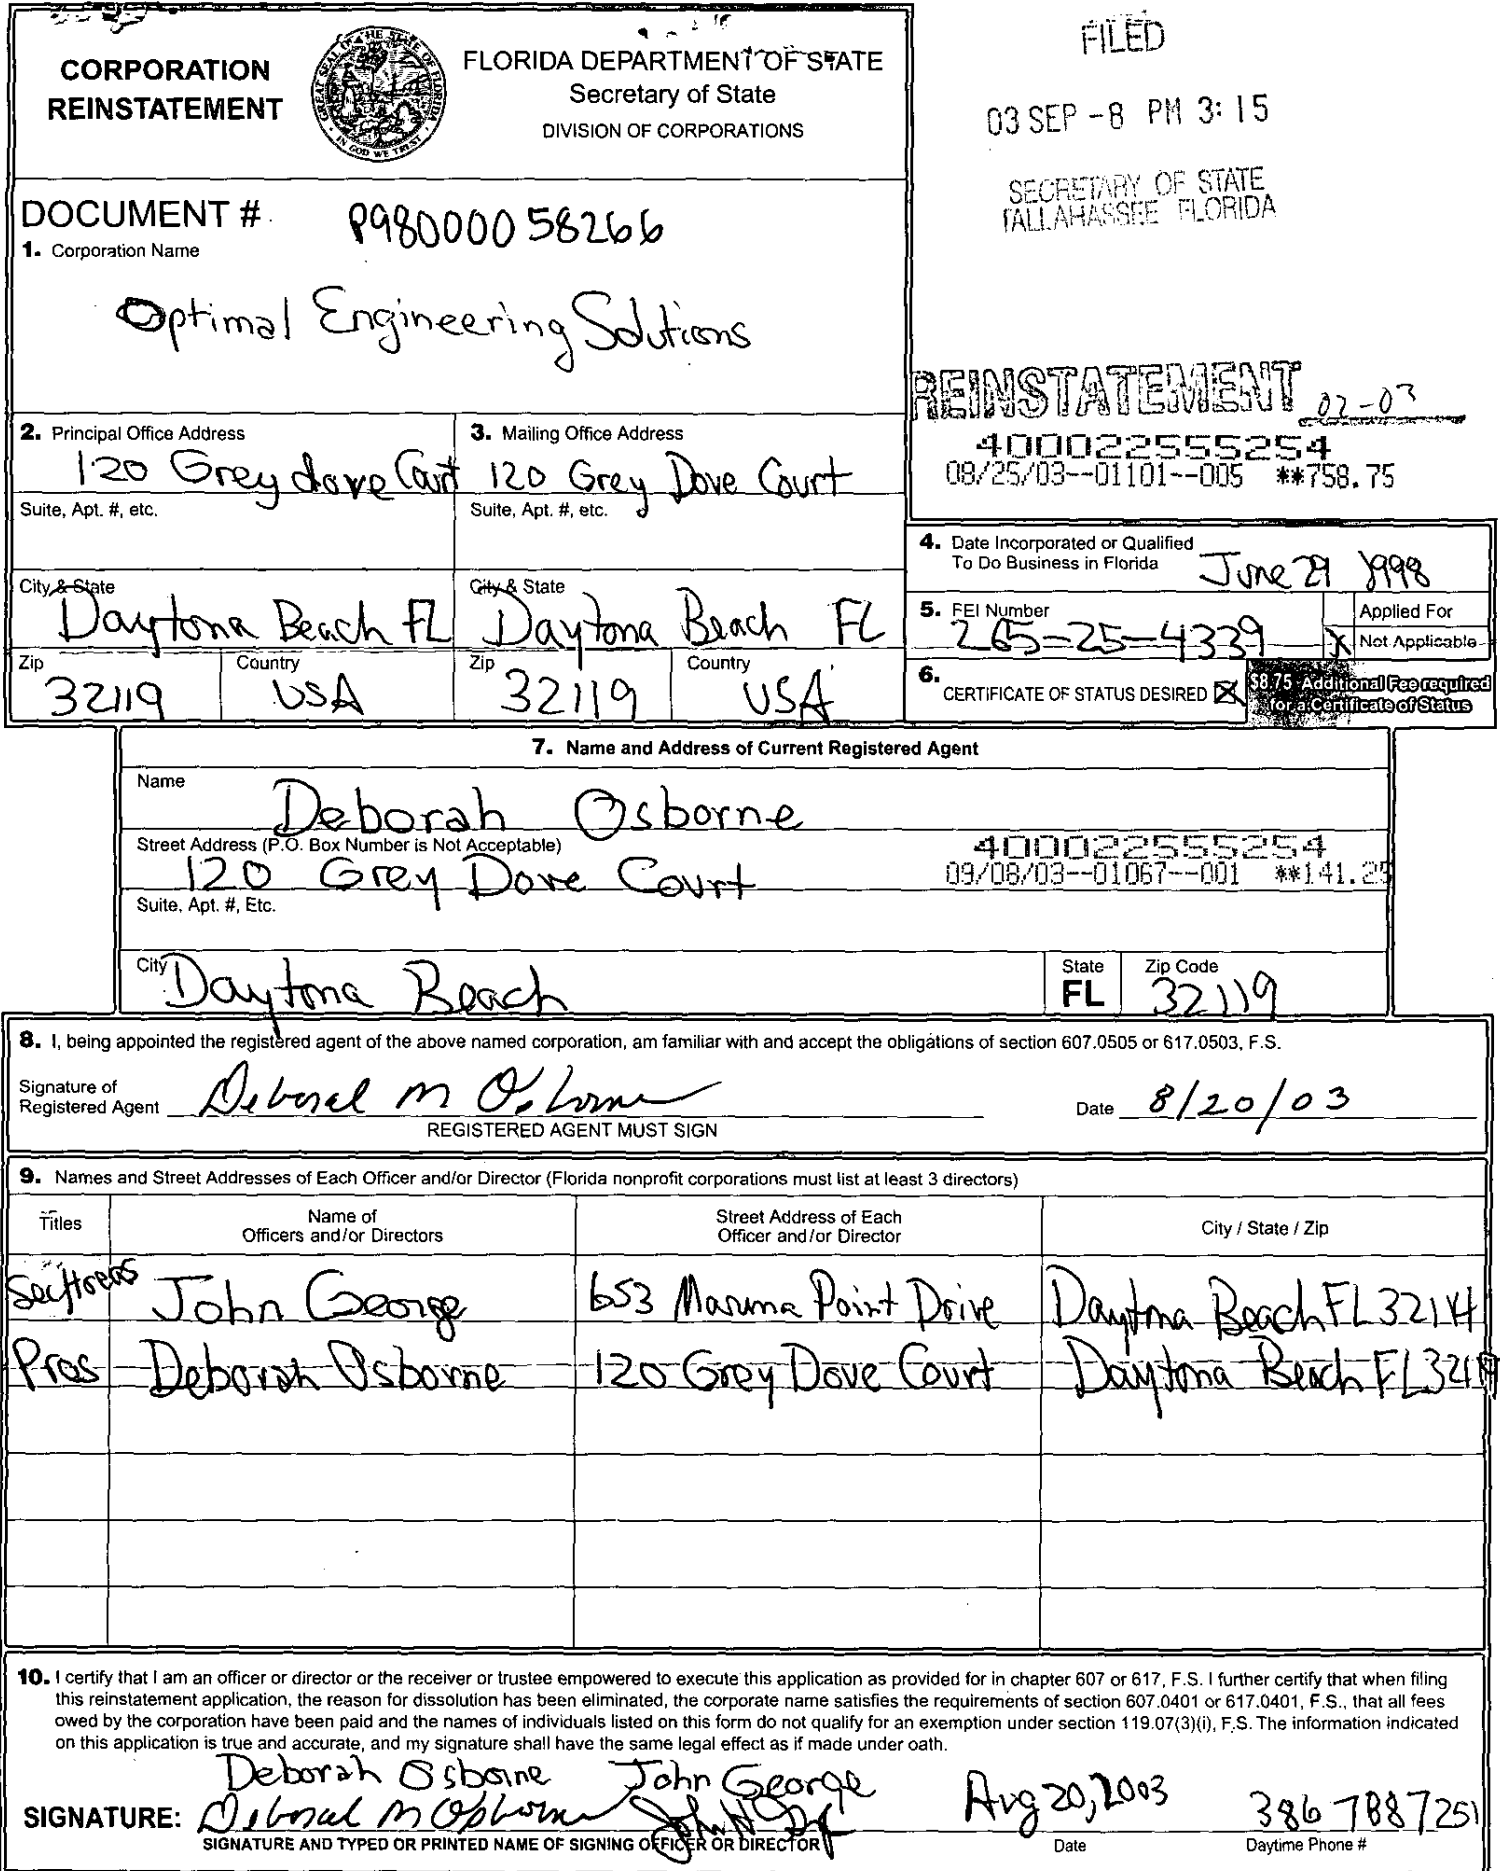 CORPORATION
REINSTATEMENT
GREAT SEAL OF THE STATE OF FLORIDA
IN GOD WE TRUST
FLORIDA DEPARTMENT OF STATE
Secretary of State
DIVISION OF CORPORATIONS
FILED
03 SEP -8 PM 3:15
SECRETARY OF STATE
TALLAHASSEE FLORIDA
DOCUMENT # P98000058266
1. Corporation Name
Optimal Engineering Solutions
REINSTATEMENT 02-03
400022555254
08/25/03--01101--005 **758.75
2. Principal Office Address
120 Grey dove Court
Suite, Apt. #, etc.
City & State
Daytona Beach FL
Zip Country
32119 USA
3. Mailing Office Address
120 Grey Dove Court
Suite, Apt. #, etc.
City & State
Daytona Beach FL
Zip Country
32119 USA
4. Date Incorporated or Qualified
To Do Business in Florida June 29 1998
5. FEI Number
265-25-4339
Applied For
X Not Applicable
6. CERTIFICATE OF STATUS DESIRED X
$8.75 Additional Fee required
for a Certificate of Status
7. Name and Address of Current Registered Agent
Name
Deborah Osborne
Street Address (P.O. Box Number is Not Acceptable)
120 Grey Dove Court
400022555254
09/08/03--01067--001 **141.25
Suite, Apt. #, Etc.
City State Zip Code
Daytona Beach FL 32119
8. I, being appointed the registered agent of the above named corporation, am familiar with and accept the obligations of section 607.0505 or 617.0503, F.S.
Signature of
Registered Agent Deborah M Osborne Date 8/20/03
REGISTERED AGENT MUST SIGN
9. Names and Street Addresses of Each Officer and/or Director (Florida nonprofit corporations must list at least 3 directors)
Titles
Name of
Officers and/or Directors
Street Address of Each
Officer and/or Director
City / State / Zip
Sec/treas John George 653 Marina Point Drive Daytona Beach FL 32114
Pres Deborah Osborne 120 Grey Dove Court Daytona Beach FL
10. I certify that I am an officer or director or the receiver or trustee empowered to execute this application as provided for in chapter 607 or 617, F.S. I further certify that when filing
this reinstatement application, the reason for dissolution has been eliminated, the corporate name satisfies the requirements of section 607.0401 or 617.0401, F.S., that all fees
owed by the corporation have been paid and the names of individuals listed on this form do not qualify for an exemption under section 119.07(3)(i), F.S. The information indicated
on this application is true and accurate, and my signature shall have the same legal effect as if made under oath.
Deborah Osborne John George
SIGNATURE: Deborah M Osborne Aug 20, 2003 386 7887251
SIGNATURE AND TYPED OR PRINTED NAME OF SIGNING OFFICER OR DIRECTOR Date Daytime Phone #